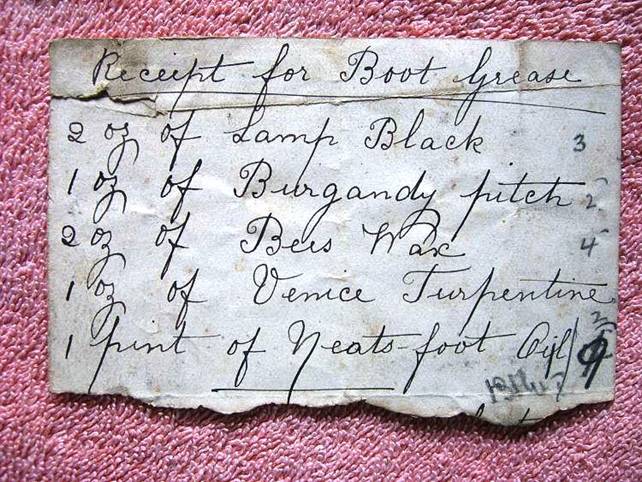 Receipt for Boot Grease
2 oz of Lamp Black 3
1 oz of Burgandy pitch 2
2 oz of Bees Wax 4
1 oz of Venice Turpentine 2
1 pint of Neats-foot Oyl